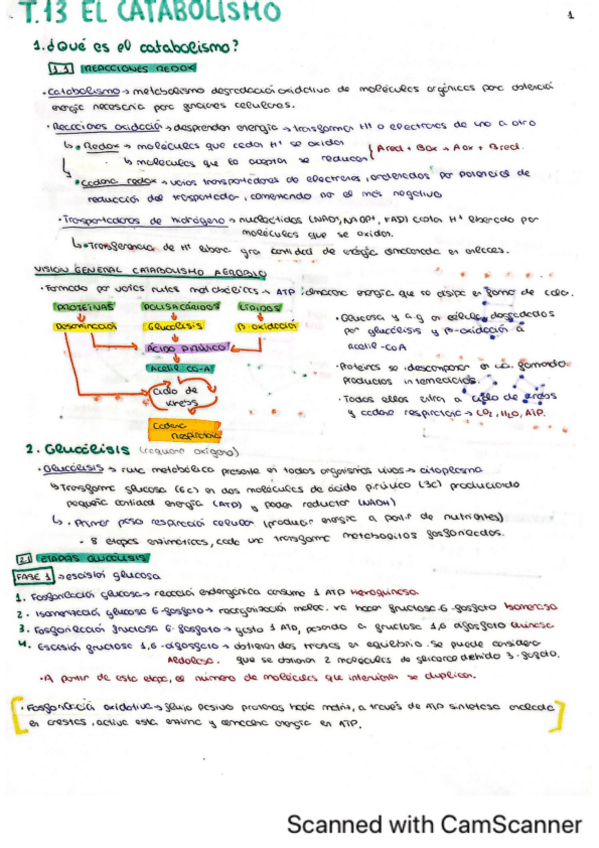 T.13 EL CATABOLISMO
1
1. ¿Qué es el catabolismo?
1.1 REACCIONES REDOX
· Catabolismo → metabolismo degradación oxidativa de moléculas orgánicas para obtención
energía necesaria para funciones celulares.
· Reacciones oxidación → desprenden energía → transforman H+ o electrones de uno a otro
↳ • Redox → moléculas que ceden H+ se oxidan
↳ moléculas que lo aceptan se reducen
Ared + Box → Aox + Bred.
• Cadena redox → varios transportadores de electrones, ordenados por potencial de
reducción del transportador, comenzando por el más negativo
· Transportadores de hidrógeno → nucleótidos (NAD+, NADP+, FAD) captan H+ liberado por
moléculas que se oxidan.
↳ • Transferencia de H+ libera gran cantidad de energía almacenada en enlaces.
VISIÓN GENERAL CATABOLISMO AEROBIO
· Formado por varias rutas metabólicas → ATP almacena energía que se disipa en forma de calor.
PROTEÍNAS POLISACÁRIDOS LÍPIDOS
Desaminación Glucólisis β oxidación
ÁCIDO PIRÚVICO
Acetil CO-A
Ciclo de
Krebs
Cadena
respiratoria
· Glucosa y a.g en célula degradados
por glucólisis y β-oxidación a
acetil-coA
· Proteínas se descomponen en a.a. formando
productos intermedios.
· Todos ellos entran a ciclo de krebs
y cadena respiratoria → CO2, H2O, ATP.
2. GLUCÓLISIS (requiere oxígeno)
· Glucólisis → ruta metabólica presente en todos organismos vivos → citoplasma
↳ Transforma glucosa (6c) en dos moléculas de ácido pirúvico (3c) produciendo
pequeña cantidad energía (ATP) y poder reductor (NADH)
↳ · Primer paso respiración celular (producir energía a partir de nutrientes)
- 8 etapas enzimáticas, cada una transforma metabolitos fosforilados.
2.1 ETAPAS GLUCÓLISIS
FASE 1 → escisión glucosa
1. Fosforilación glucosa → reacción endergónica consume 1 ATP Hexoquinasa.
2. Isomerización glucosa 6-fosfato → reorganización molec. va hacer fructosa 6-fosfato Isomerasa
3. Fosforilación fructosa 6-fosfato → gasto 1 ATP, pasando a fructosa 1,6 difosfato Quinasa
4. Escisión fructosa 1,6-difosfato → obtienen dos triosas en equilibrio. Se puede considerar
Aldolasa. que se obtienen 2 moléculas de gliceraldehído 3-fosfato.
· A partir de esta etapa, el número de moléculas que intervienen se duplican.
· Fosforilación oxidativa → flujo pasivo protones hacia matriz, a través de ATP sintetasa anclada
en crestas, activa esta enzima y almacena energía en ATP.
Scanned with CamScanner